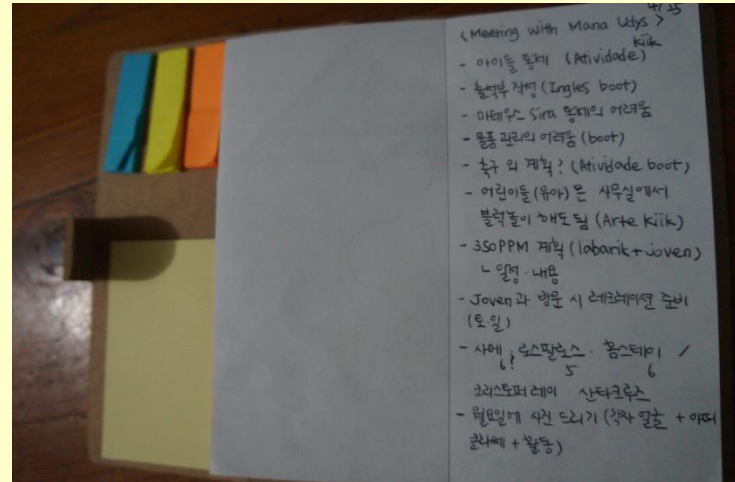 4/25
<Meeting with Mana Udys>
Kiik
- 아이들 통제 (Atividade)
- 출석부 작성 (Ingles boot)
- 마테우스 Sira 통제의 어려움
- 물품 관리의 어려움 (boot)
- 축구 외 계획? (Atividade boot)
- 어린이들(유아)은 사무실에서
블럭놀이 해도 됨 (Arte Kiik)
- 350PPM 계획 (labarik + joven)
ㄴ 일정 · 내용
- Joven과 방문 시 레크레이션 준비
(토·일)
- 사메 · 로스팔로스 · 홈스테이 /
6? 5 6
크리스토퍼 레이 · 산타크루즈
- 월요일에 사진 드리기 (각자 얼굴 +
+ 활동)